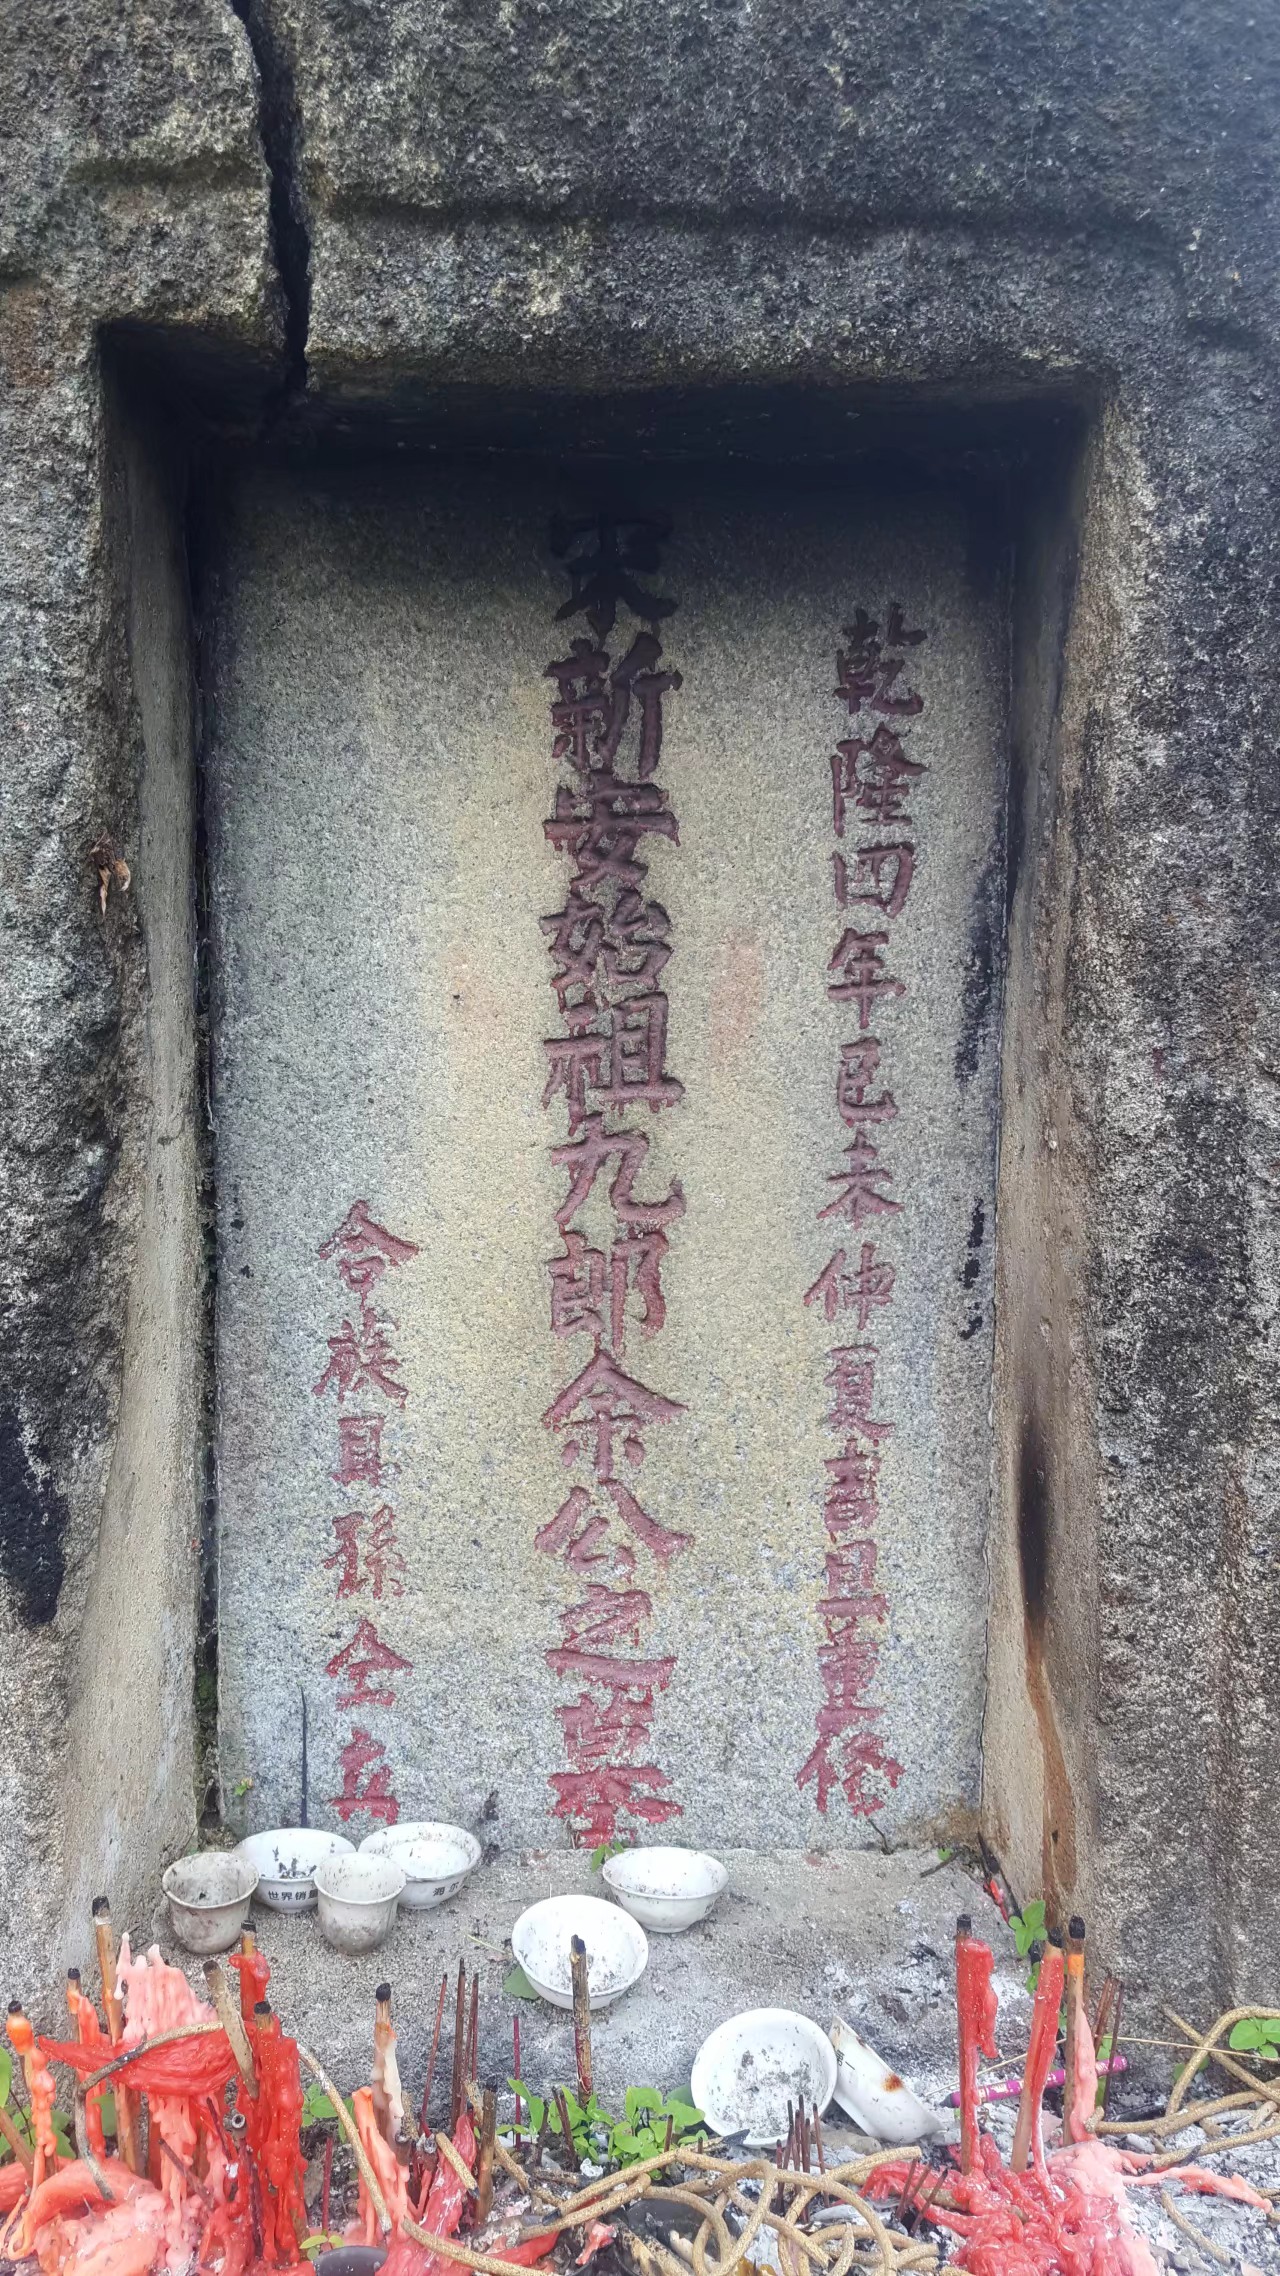 乾隆四年己未仲夏吉旦重修
宋新安始祖九郎余公之墓
合族員孫仝立
世界销量
海尔